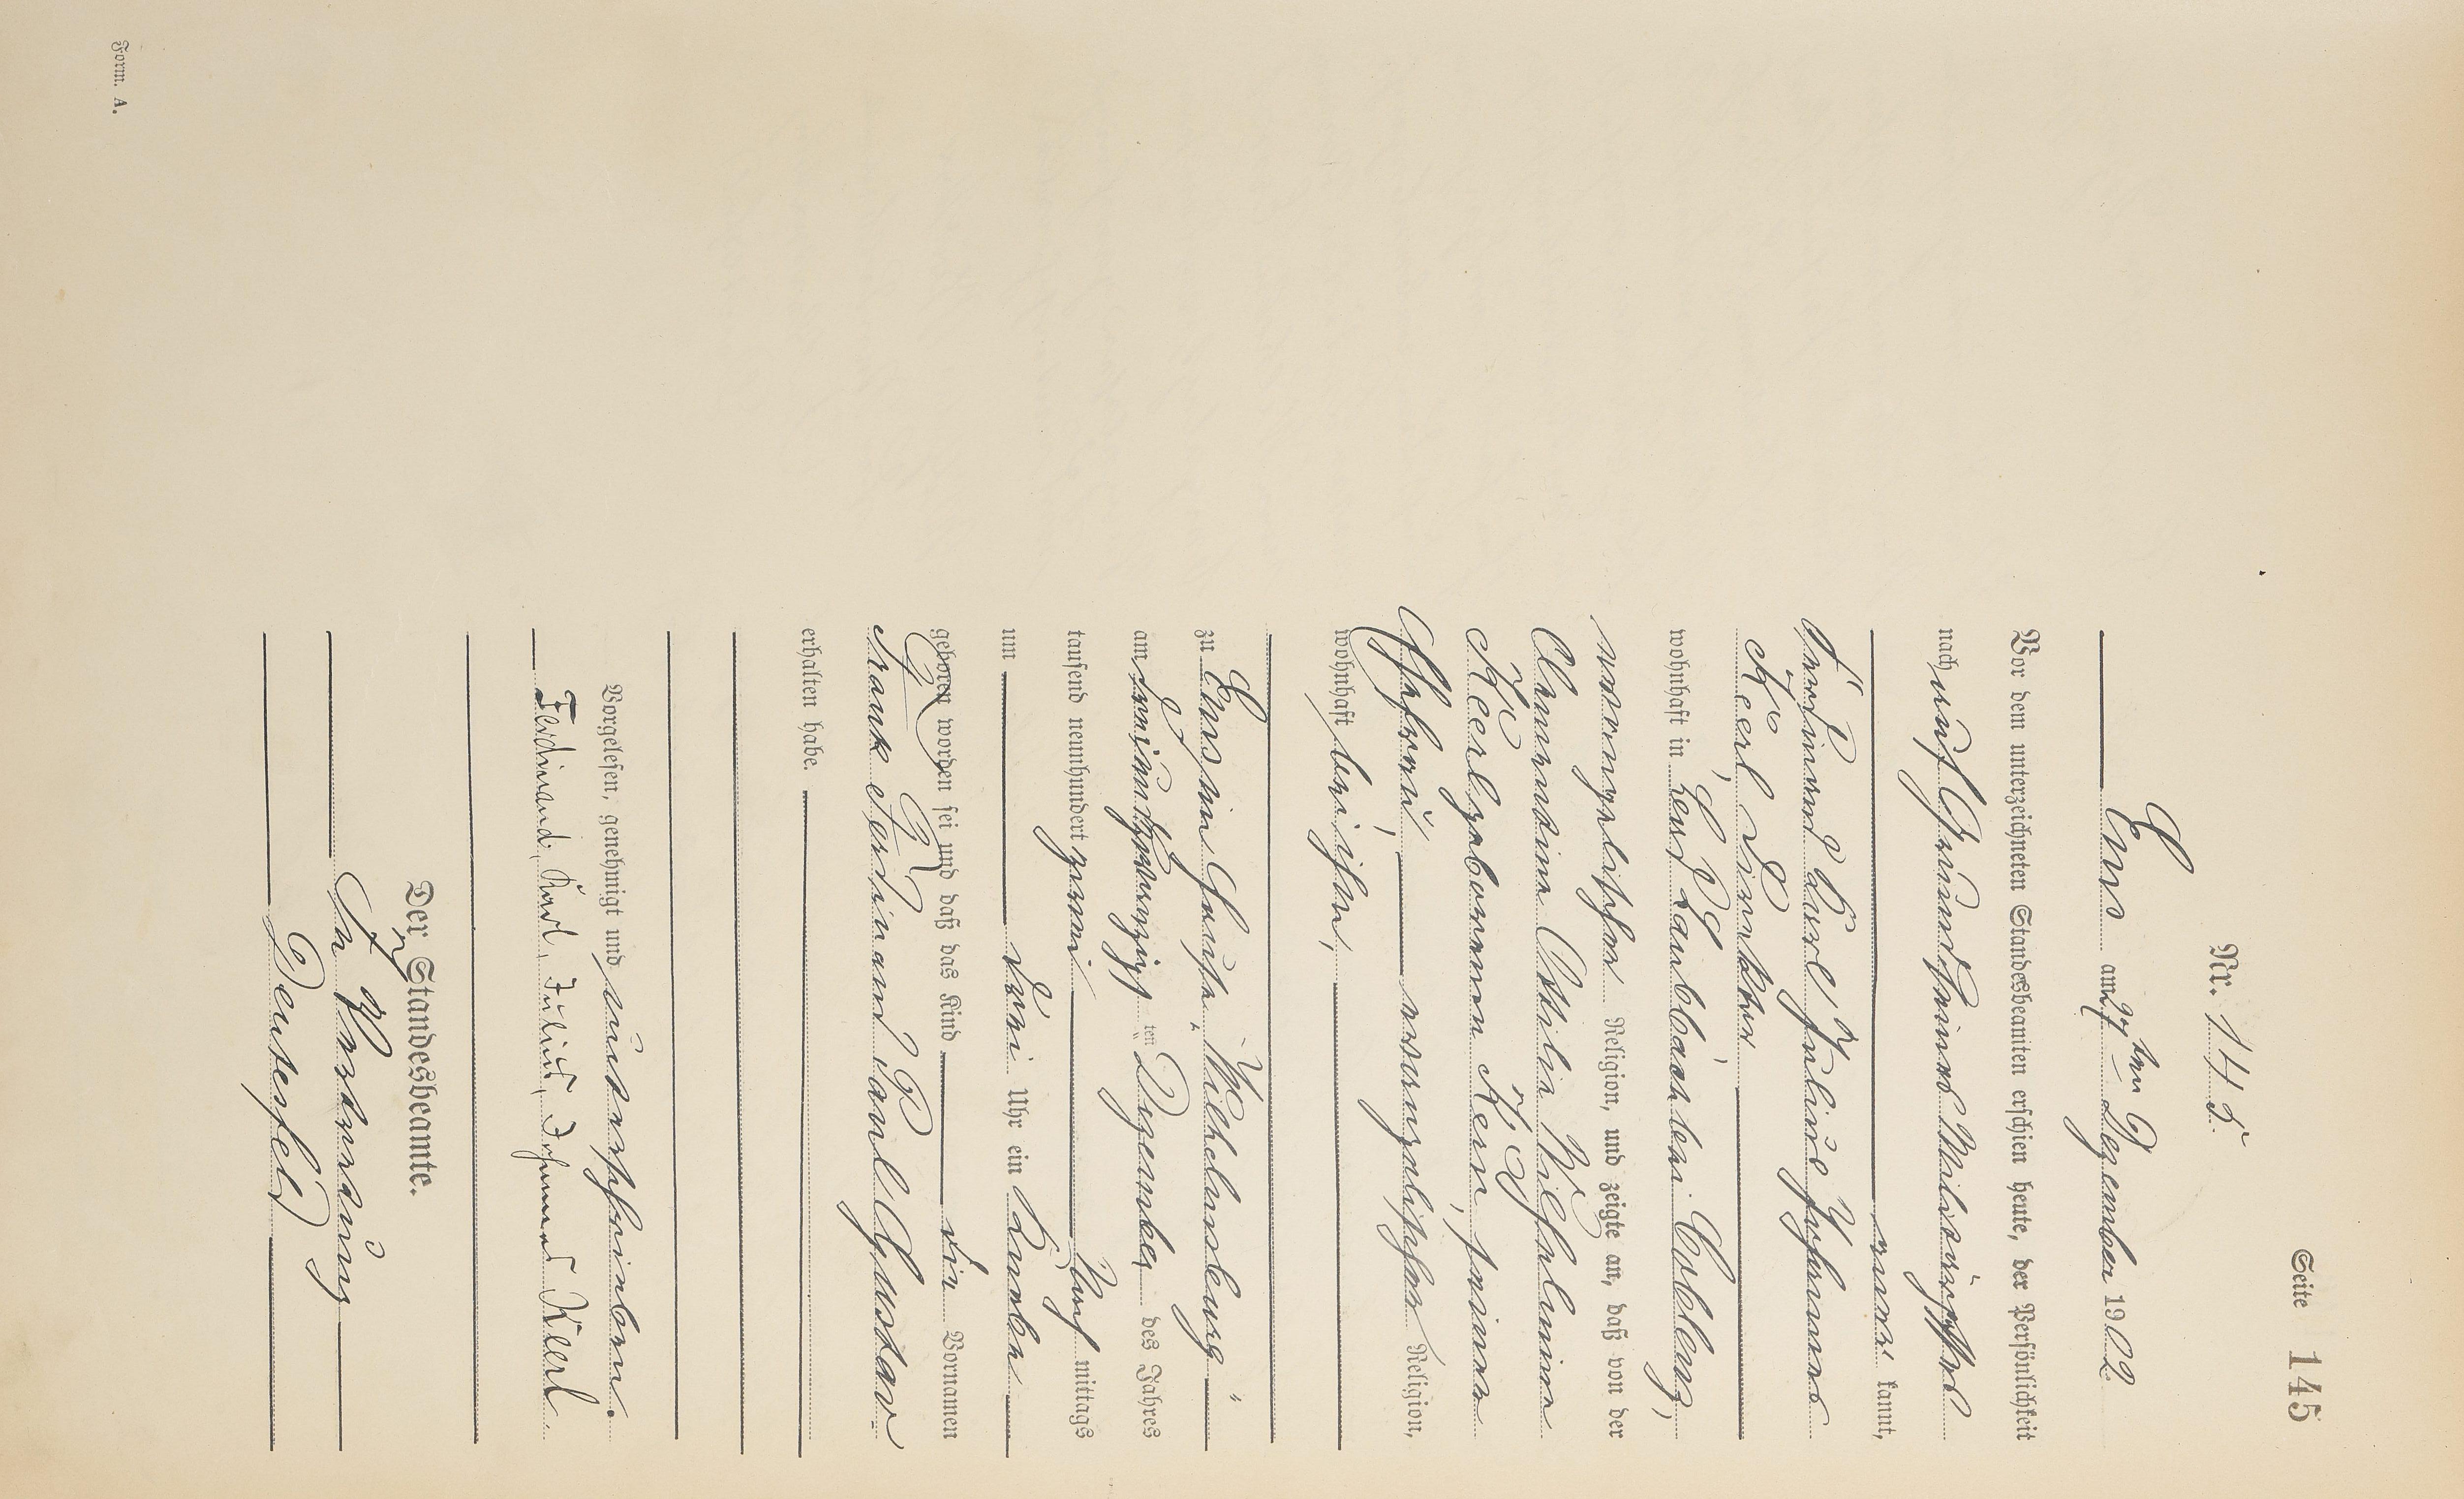 Seite 145
Nr. 145
Ems am 27ten Dezember 1902
Vor dem unterzeichneten Standesbeamten erschien heute, der Persönlichkeit
nach auf Grund seines Militärpasses
kannt,
Ferdinand Carl Julius Johannes
Keerl, Direktor
wohnhaft in Laubbach bei Coblenz,
evangelischer Religion, und zeigte an, daß von der
Clementine Ottilie Wilhelmine
Keerl geborenen Kern, seiner
Ehefrau, evangelischer Religion,
wohnhaft bei ihm,
zu Ems im Hause „Wilhelmsburg“
am dreiundzwanzigsten Dezember des Jahres
tausend neunhundert zwei Nachmittags
um drei Uhr ein Knabe
geboren worden sei und daß das Kind die Vornamen
Frank Ferdinand Paul Gustav
erhalten habe.
Vorgelesen, genehmigt und unterschrieben.
Ferdinand, Karl, Julius, Johannes Keerl
Der Standesbeamte.
In Vertretung
Form. A.